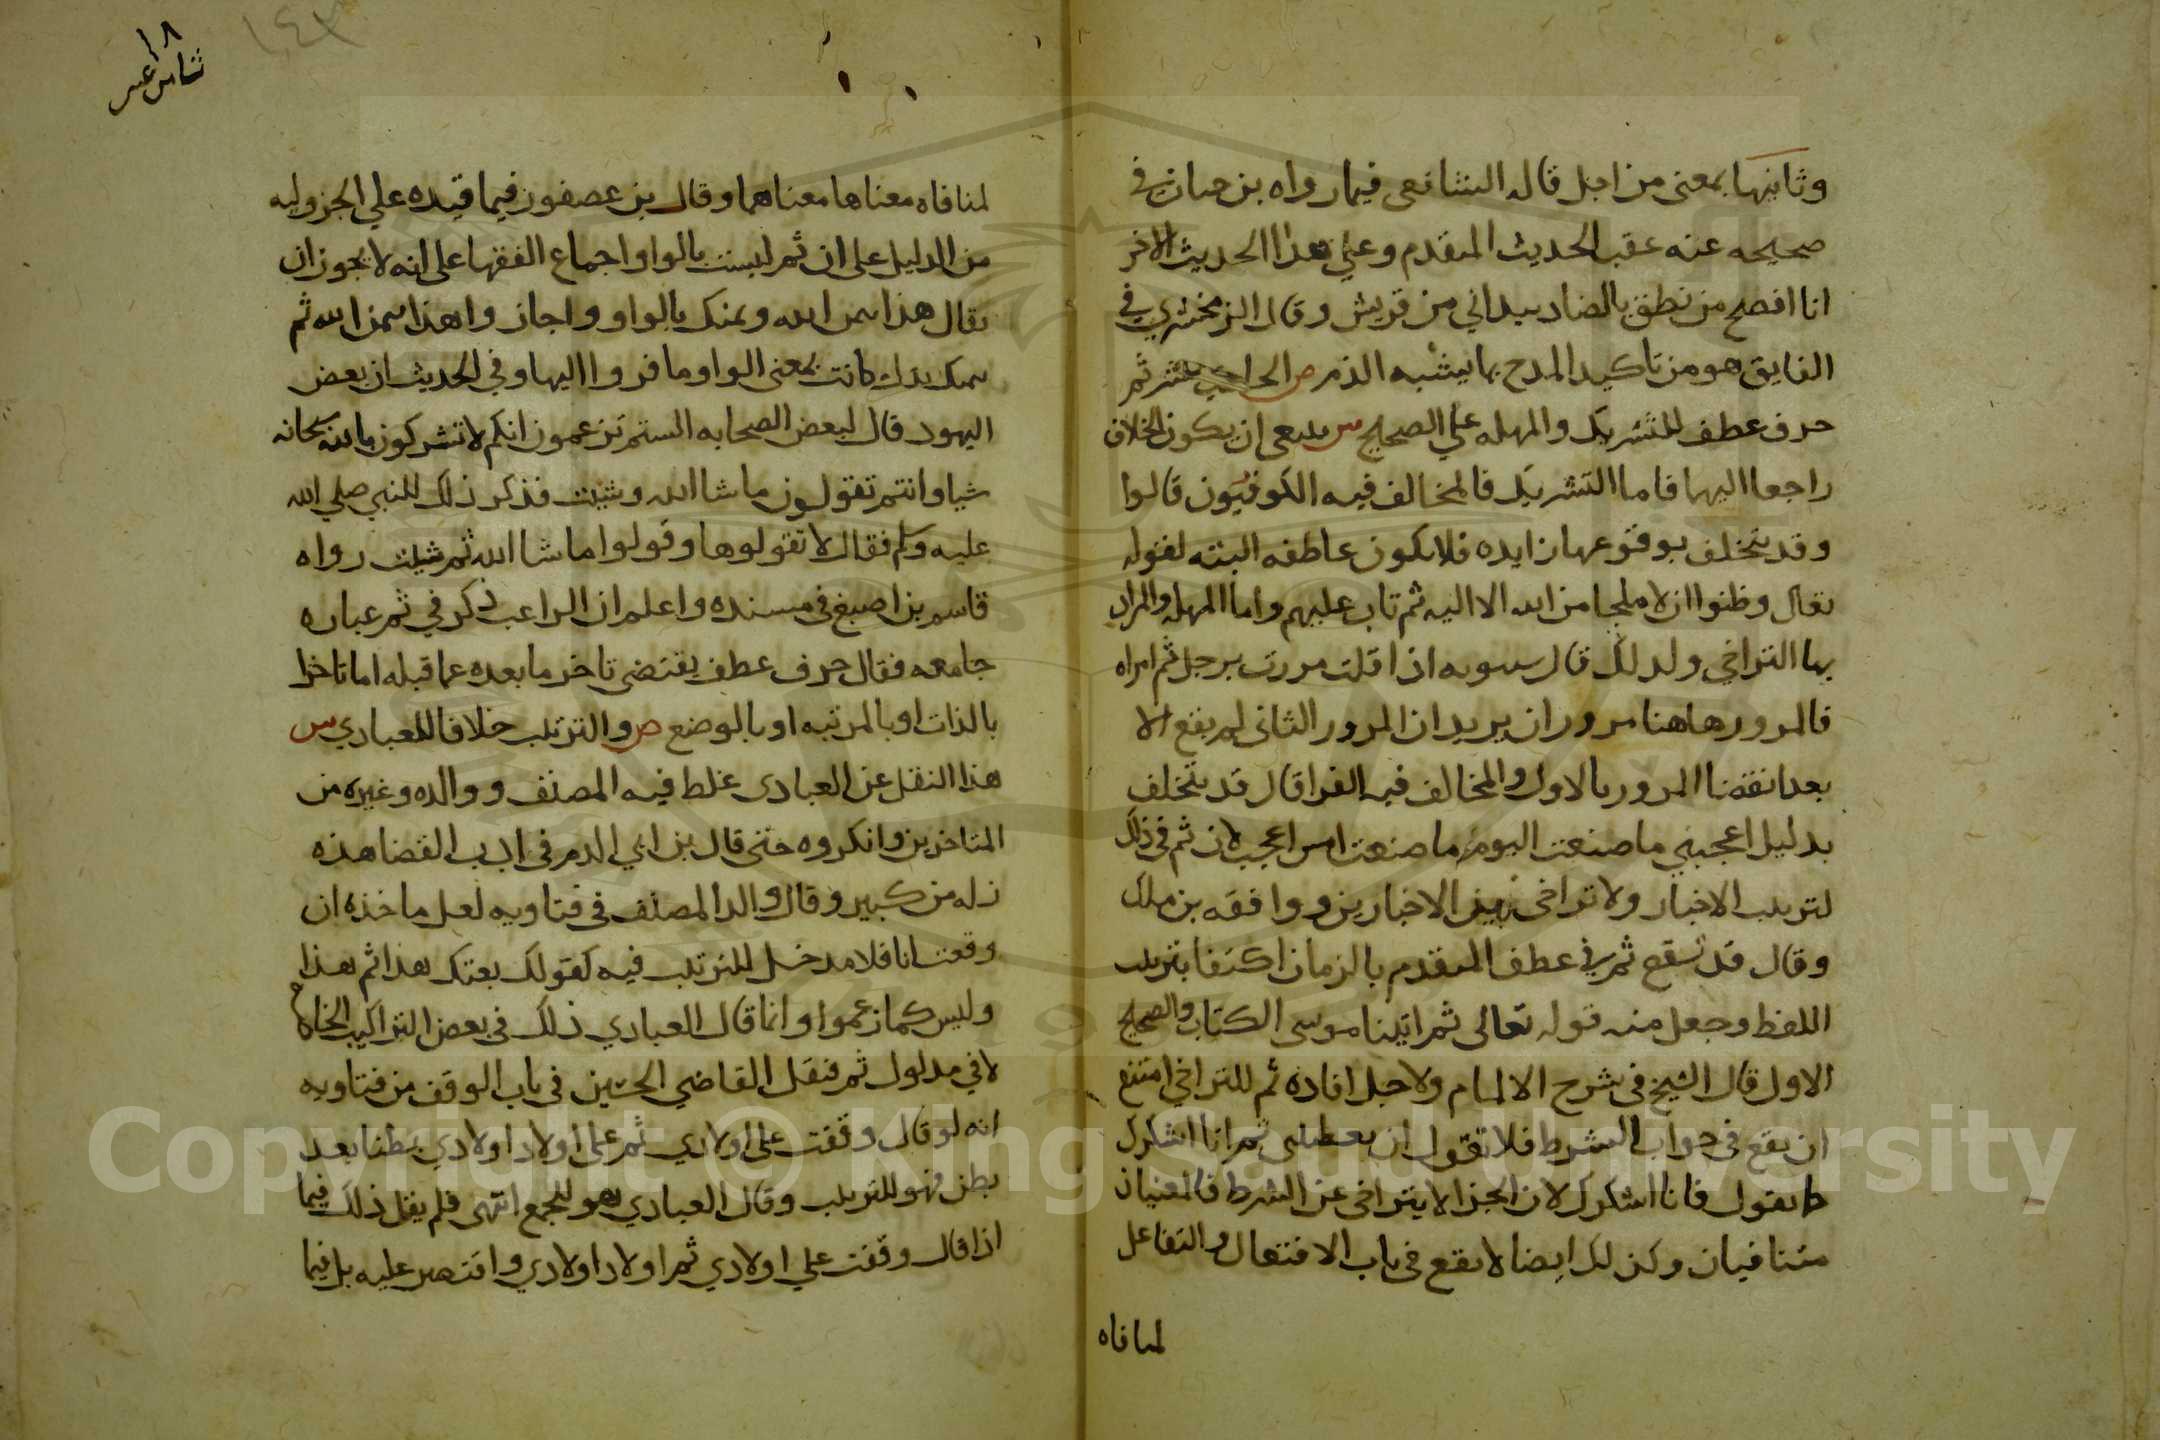 وثانيها بمعنى من اجل قاله الشافعي فيما رواه بن حبان في
صحيحه عنه عقب الحديث المتقدم وعلى هذا الحديث الاخر
انا افصح من نطق بالضاد بيداني من قريش وقال الزمخشري في
الفايق هو من تاكيد المدح بما يشبه الذم ص الحادي عشر ثم
حرف عطف للتشريك والمهله علي الصحيح س ينبغي ان يكون الخلاف
راجعا اليهما فاما التشريك فالمخالف فيه الكوفيون قالوا
وقد يتخلف بوقوعها زايده فلا تكون عاطفه البته لقوله
تعالى وظنوا ان لا ملجا من الله الا اليه ثم تاب عليهم واما المهله والمراد
بها التراخي ولذلك قال سيبويه اذا قلت مررت برجل ثم امراه
فالمرور هاهنا مروران يريد ان المرور الثاني لم يقع الا
بعد انقضا المرور بالاول والمخالف فيه الفرا قال قد يتخلف
بدليل اعجبني ما صنعت اليوم ثم ما صنعت امس اعجب لان ثم في ذلك
لترتيب الاخبار ولا تراخي بين الاخبارين ووافقه بن ملك
وقال قد تقع ثم في عطف المتقدم بالزمان اكتفا بترتيب
اللفظ وجعل منه قوله تعالى ثم اتينا موسى الكتاب والصحيح
الاول قال الشيخ في شرح الالمام ولاجل افاده ثم للتراخي امتنع
ان يقع في جواب الشرط فلا تقول ان يعطني ثم انا اشكرك
كما تقول فانا اشكرك لان الجزا لا يتراخى عن الشرط فالمعنيان
متنافيان وكذلك ايضا لا يقع في باب الافتعال والتفاعل
لمنافاه
١٨
ثامن عشر
١٤٣
لمنافاه معناها معناهما وقال بن عصفور فيما قيده علي الجزوليه
من الدليل على ان ثم ليست كالواو اجماع الفقها على انه لا يجوز ان
يقال هذا بيمن الله ويمنك بالواو واجازوا هذا بيمن الله ثم
يمنك بذلك كانت بمعنى الواو ما فروا اليها وفي الحديث ان بعض
اليهود قال لبعض الصحابه الستم تزعمون انكم لا تشركون بالله سبحانه
شيا وانتم تقولون ما شا الله وشيت فذكر ذلك للنبي صلي الله
عليه وسلم فقال لا تقولوها وقولوا ما شا الله ثم شيت رواه
قاسم بن اصبغ في مسنده واعلم ان الراغب ذكر في ثم عباره
جامعه فقال حرف عطف يقتضي تاخر ما بعده عما قبله اما تاخرا
بالذات او بالمرتبه او بالوضع ص والترتيب خلافا للعبادي س
هذا النقل عن العبادي غلط فيه المصنف ووالده وغيره من
المتاخرين وانكروه حتى قال بن ابي الدم في ادب القضا هذه
زله من كبير وقال والد المصنف في فتاويه لعل ماخذه ان
وقعت انا فلا مدخل للترتيب فيه كقولك بعتك هذا ثم هذا
وليس كما زعموا وانما قال العبادي ذلك في بعض التراكيب الخاصه
لا في مدلول ثم فنقل القاضي الحسين في باب الوقف من فتاويه
انه لو قال وقفت علي اولادي ثم على اولاد اولادي بطنا بعد
بطن فهو للترتيب وقال العبادي هو للجمع انتهى فلم يقل ذلك فيما
اذا قال وقفت علي اولادي ثم اولاد اولادي واقتصر عليه بل فيما
Copyright © King Saud University